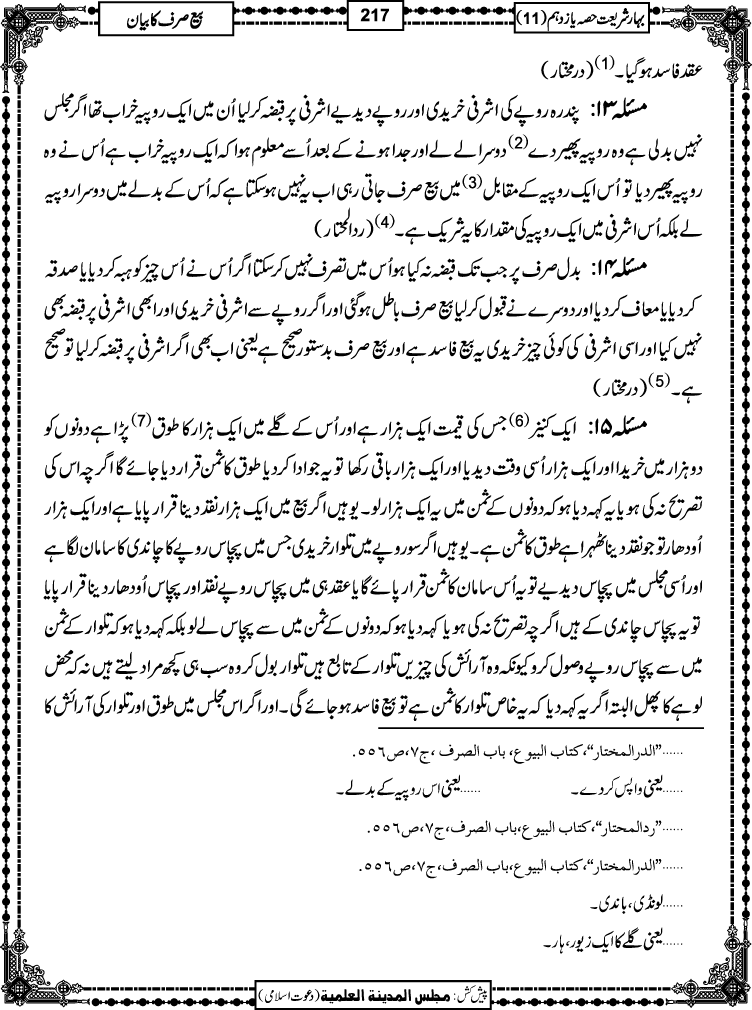 بہارِ شریعت حصہ یازدہم (11)
217
بیع صرف کا بیان
عقد فاسد ہوگیا۔(1) (درمختار)
مسئلہ ۱۳: پندرہ روپے کی اشرفی خریدی اور روپے دیدیے اشرفی پر قبضہ کرلیا اُن میں ایک روپیہ خراب تھا اگر مجلس
نہیں بدلی ہے وہ روپیہ پھیر دے(2) دوسرا لے لے اور جدا ہونے کے بعد اُسے معلوم ہوا کہ ایک روپیہ خراب ہے اُس نے وہ
روپیہ پھیر دیا تو اُس ایک روپیہ کے مقابل(3) میں بیع صرف جاتی رہی اب یہ نہیں ہوسکتا ہے کہ اُس کے بدلے میں دوسرا روپیہ
لے بلکہ اُس اشرفی میں ایک روپیہ کی مقدار کا یہ شریک ہے۔(4) (ردالمحتار)
مسئلہ ۱۴: بدل صرف پر جب تک قبضہ نہ کیا ہو اُس میں تصرف نہیں کرسکتا اگر اُس نے اُس چیز کو ہبہ کردیا یا صدقہ
کردیا یا معاف کردیا اور دوسرے نے قبول کرلیا بیع صرف باطل ہوگئی اور اگر روپے سے اشرفی خریدی اور ابھی اشرفی پر قبضہ بھی
نہیں کیا اور اسی اشرفی کی کوئی چیز خریدی یہ بیع فاسد ہے اور بیع صرف بدستور صحیح ہے یعنی اب بھی اگر اشرفی پر قبضہ کرلیا تو صحیح
ہے۔(5) (درمختار)
مسئلہ ۱۵: ایک کنیز(6) جس کی قیمت ایک ہزار ہے اور اُس کے گلے میں ایک ہزار کا طوق(7) پڑا ہے دونوں کو
دو ہزار میں خریدا اور ایک ہزار اُسی وقت دیدیا اور ایک ہزار باقی رکھا تو یہ جو ادا کردیا طوق کا ثمن قرار دیا جائے گا اگرچہ اس کی
تصریح نہ کی ہو یا یہ کہہ دیا ہو کہ دونوں کے ثمن میں یہ ایک ہزار لو۔ یوہیں اگر بیع میں ایک ہزار نقد دینا قرار پایا ہے اور ایک ہزار
اُودھار تو جو نقد دینا ٹھہرا ہے طوق کا ثمن ہے۔ یوہیں اگر سو روپے میں تلوار خریدی جس میں پچاس روپے کا چاندی کا سامان لگا ہے
اور اُسی مجلس میں پچاس دیدیے تو یہ اُس سامان کا ثمن قرار پائے گا یا عقد ہی میں پچاس روپے نقد اور پچاس اُودھار دینا قرار پایا
تو یہ پچاس چاندی کے ہیں اگرچہ تصریح نہ کی ہو یا کہہ دیا ہو کہ دونوں کے ثمن میں سے پچاس لے لو بلکہ کہہ دیا ہو کہ تلوار کے ثمن
میں سے پچاس روپے وصول کرو کیونکہ وہ آرائش کی چیزیں تلوار کے تابع ہیں تلوار بول کر وہ سب ہی کچھ مراد لیتے ہیں نہ کہ محض
لوہے کا پھل البتہ اگر یہ کہہ دیا کہ یہ خاص تلوار کا ثمن ہے تو بیع فاسد ہوجائے گی۔ اور اگر اس مجلس میں طوق اور تلوار کی آرائش کا
......"الدرالمختار"،کتاب البیوع، باب الصرف ،ج۷،ص۵۵۶.
......یعنی واپس کردے۔ ......یعنی اس روپیہ کے بدلے۔
......"ردالمحتار"،کتاب البیوع،باب الصرف،ج۷،ص۵۵۶.
......"الدرالمختار"،کتاب البیوع،باب الصرف،ج۷،ص۵۵۶.
......لونڈی،باندی۔
......یعنی گلے کا ایک زیور،ہار۔
پیش کش: مجلس المدینۃ العلمیۃ (دعوت اسلامی)